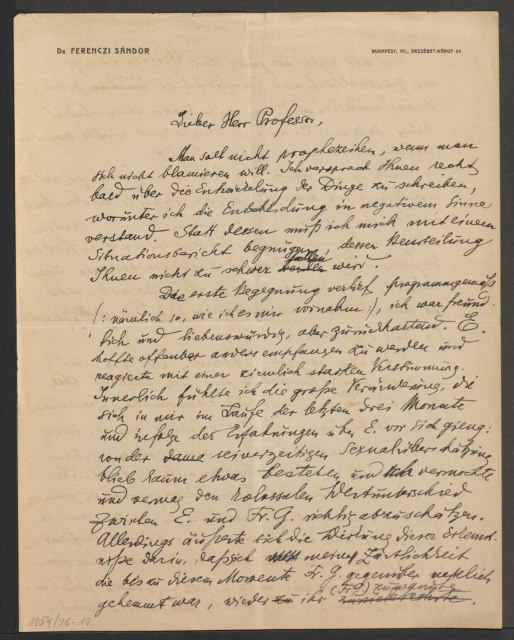 Dr. FERENCZI SÁNDOR
BUDAPEST, VII., ERZSÉBET-KÖRUT 54.
Lieber Herr Professor,
Man soll nicht prophezeihen, wenn man
sich nicht blamieren will. Ich versprach Ihnen recht
bald über die Entwickelung der Dinge zu schreiben,
worunter ich die Entscheidung in negativem Sinne
verstand. Statt dessen muß ich mich mit einem
Situationsbericht begnügen, dessen Beurteilung
Ihnen nicht zu schwer fallen wird.
Die erste Begegnung verlief programmgemäß
/: nämlich so, wie ich es mir vornahm :/, ich war freund-
lich und liebenswürdig, aber zurückhaltend. E.
hoffte offenbar anders empfangen zu werden und
reagierte mit einer ziemlich starken Verstimmung.
Innerlich fühlte ich die große Veränderung, die
sich in mir im Laufe der letzten drei Monate
und infolge der Erfahrungen über E. vor sich gieng:
von der seinerzeitigen Sexualüberschätzung
blieb kaum etwas bestehen und ich vermochte
und vermag den kolossalen Wertunterschied
zwischen E. und Fr. G. richtig abzuschätzen.
Allerdings äußerte sich die Wirkung dieser Erkennt-
nisse darin, daß sich meine Zärtlichkeit
die bis zu diesem Momente Fr. G. gegenüber
gehemmt war, wieder zu ihr (Fr. G.) zuwandte
1054/26-10